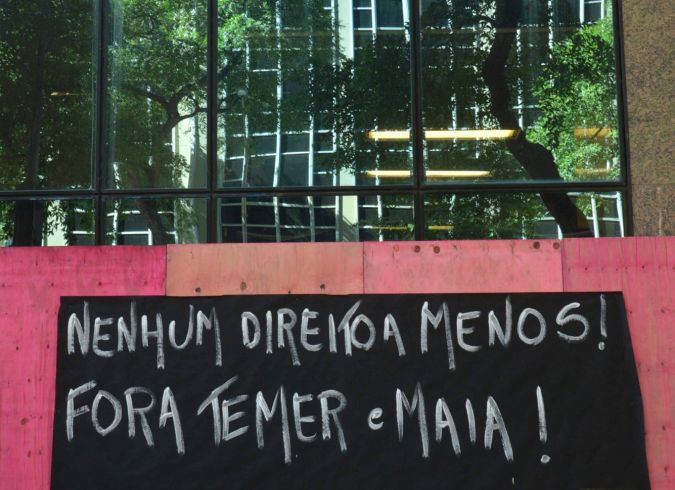 NENHUM DIREITO A MENOS!
FORA TEMER e MAIA!